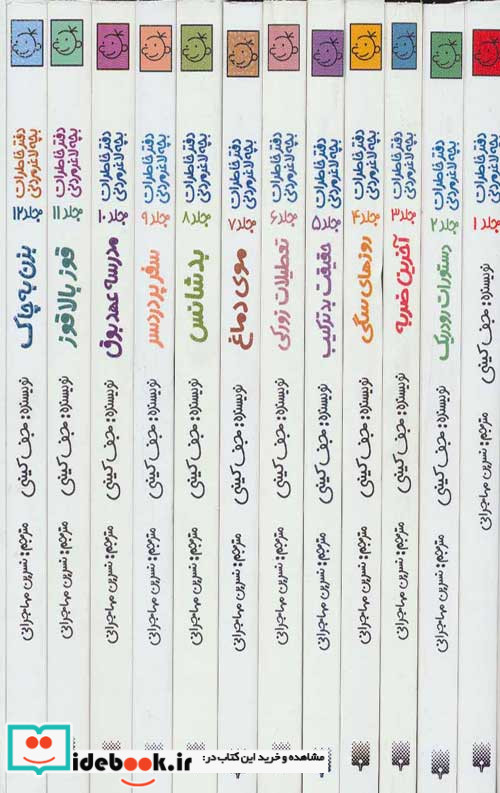 دفتر خاطرات
بچه لاغر مردنی
جلد ۱
نویسنده: جف کینی
مترجم: نسرین مهاجرانی
دفتر خاطرات
بچه لاغر مردنی
جلد ۲
دستورات رودریک
نویسنده: جف کینی
مترجم: نسرین مهاجرانی
دفتر خاطرات
بچه لاغر مردنی
جلد ۳
آخرین ضربه
نویسنده: جف کینی
مترجم: نسرین مهاجرانی
دفتر خاطرات
بچه لاغر مردنی
جلد ۴
روزهای سگی
نویسنده: جف کینی
مترجم: نسرین مهاجرانی
دفتر خاطرات
بچه لاغر مردنی
جلد ۵
حقیقت بد ترکیب
نویسنده: جف کینی
مترجم: نسرین مهاجرانی
دفتر خاطرات
بچه لاغر مردنی
جلد ۶
تعطیلات زورکی
نویسنده: جف کینی
مترجم: نسرین مهاجرانی
دفتر خاطرات
بچه لاغر مردنی
جلد ۷
موی دماغ
نویسنده: جف کینی
مترجم: نسرین مهاجرانی
دفتر خاطرات
بچه لاغر مردنی
جلد ۸
بدشانس
نویسنده: جف کینی
مترجم: نسرین مهاجرانی
دفتر خاطرات
بچه لاغر مردنی
جلد ۹
سفر پر دردسر
نویسنده: جف کینی
مترجم: نسرین مهاجرانی
دفتر خاطرات
بچه لاغر مردنی
جلد ۱۰
مدرسه عهد بوق
نویسنده: جف کینی
مترجم: نسرین مهاجرانی
دفتر خاطرات
بچه لاغر مردنی
جلد ۱۱
قوز بالا قوز
نویسنده: جف کینی
مترجم: نسرین مهاجرانی
دفتر خاطرات
بچه لاغر مردنی
جلد ۱۲
بزن به چاک
نویسنده: جف کینی
مترجم: نسرین مهاجرانی
مشاهده و خرید این کتاب در:
idebook.ir